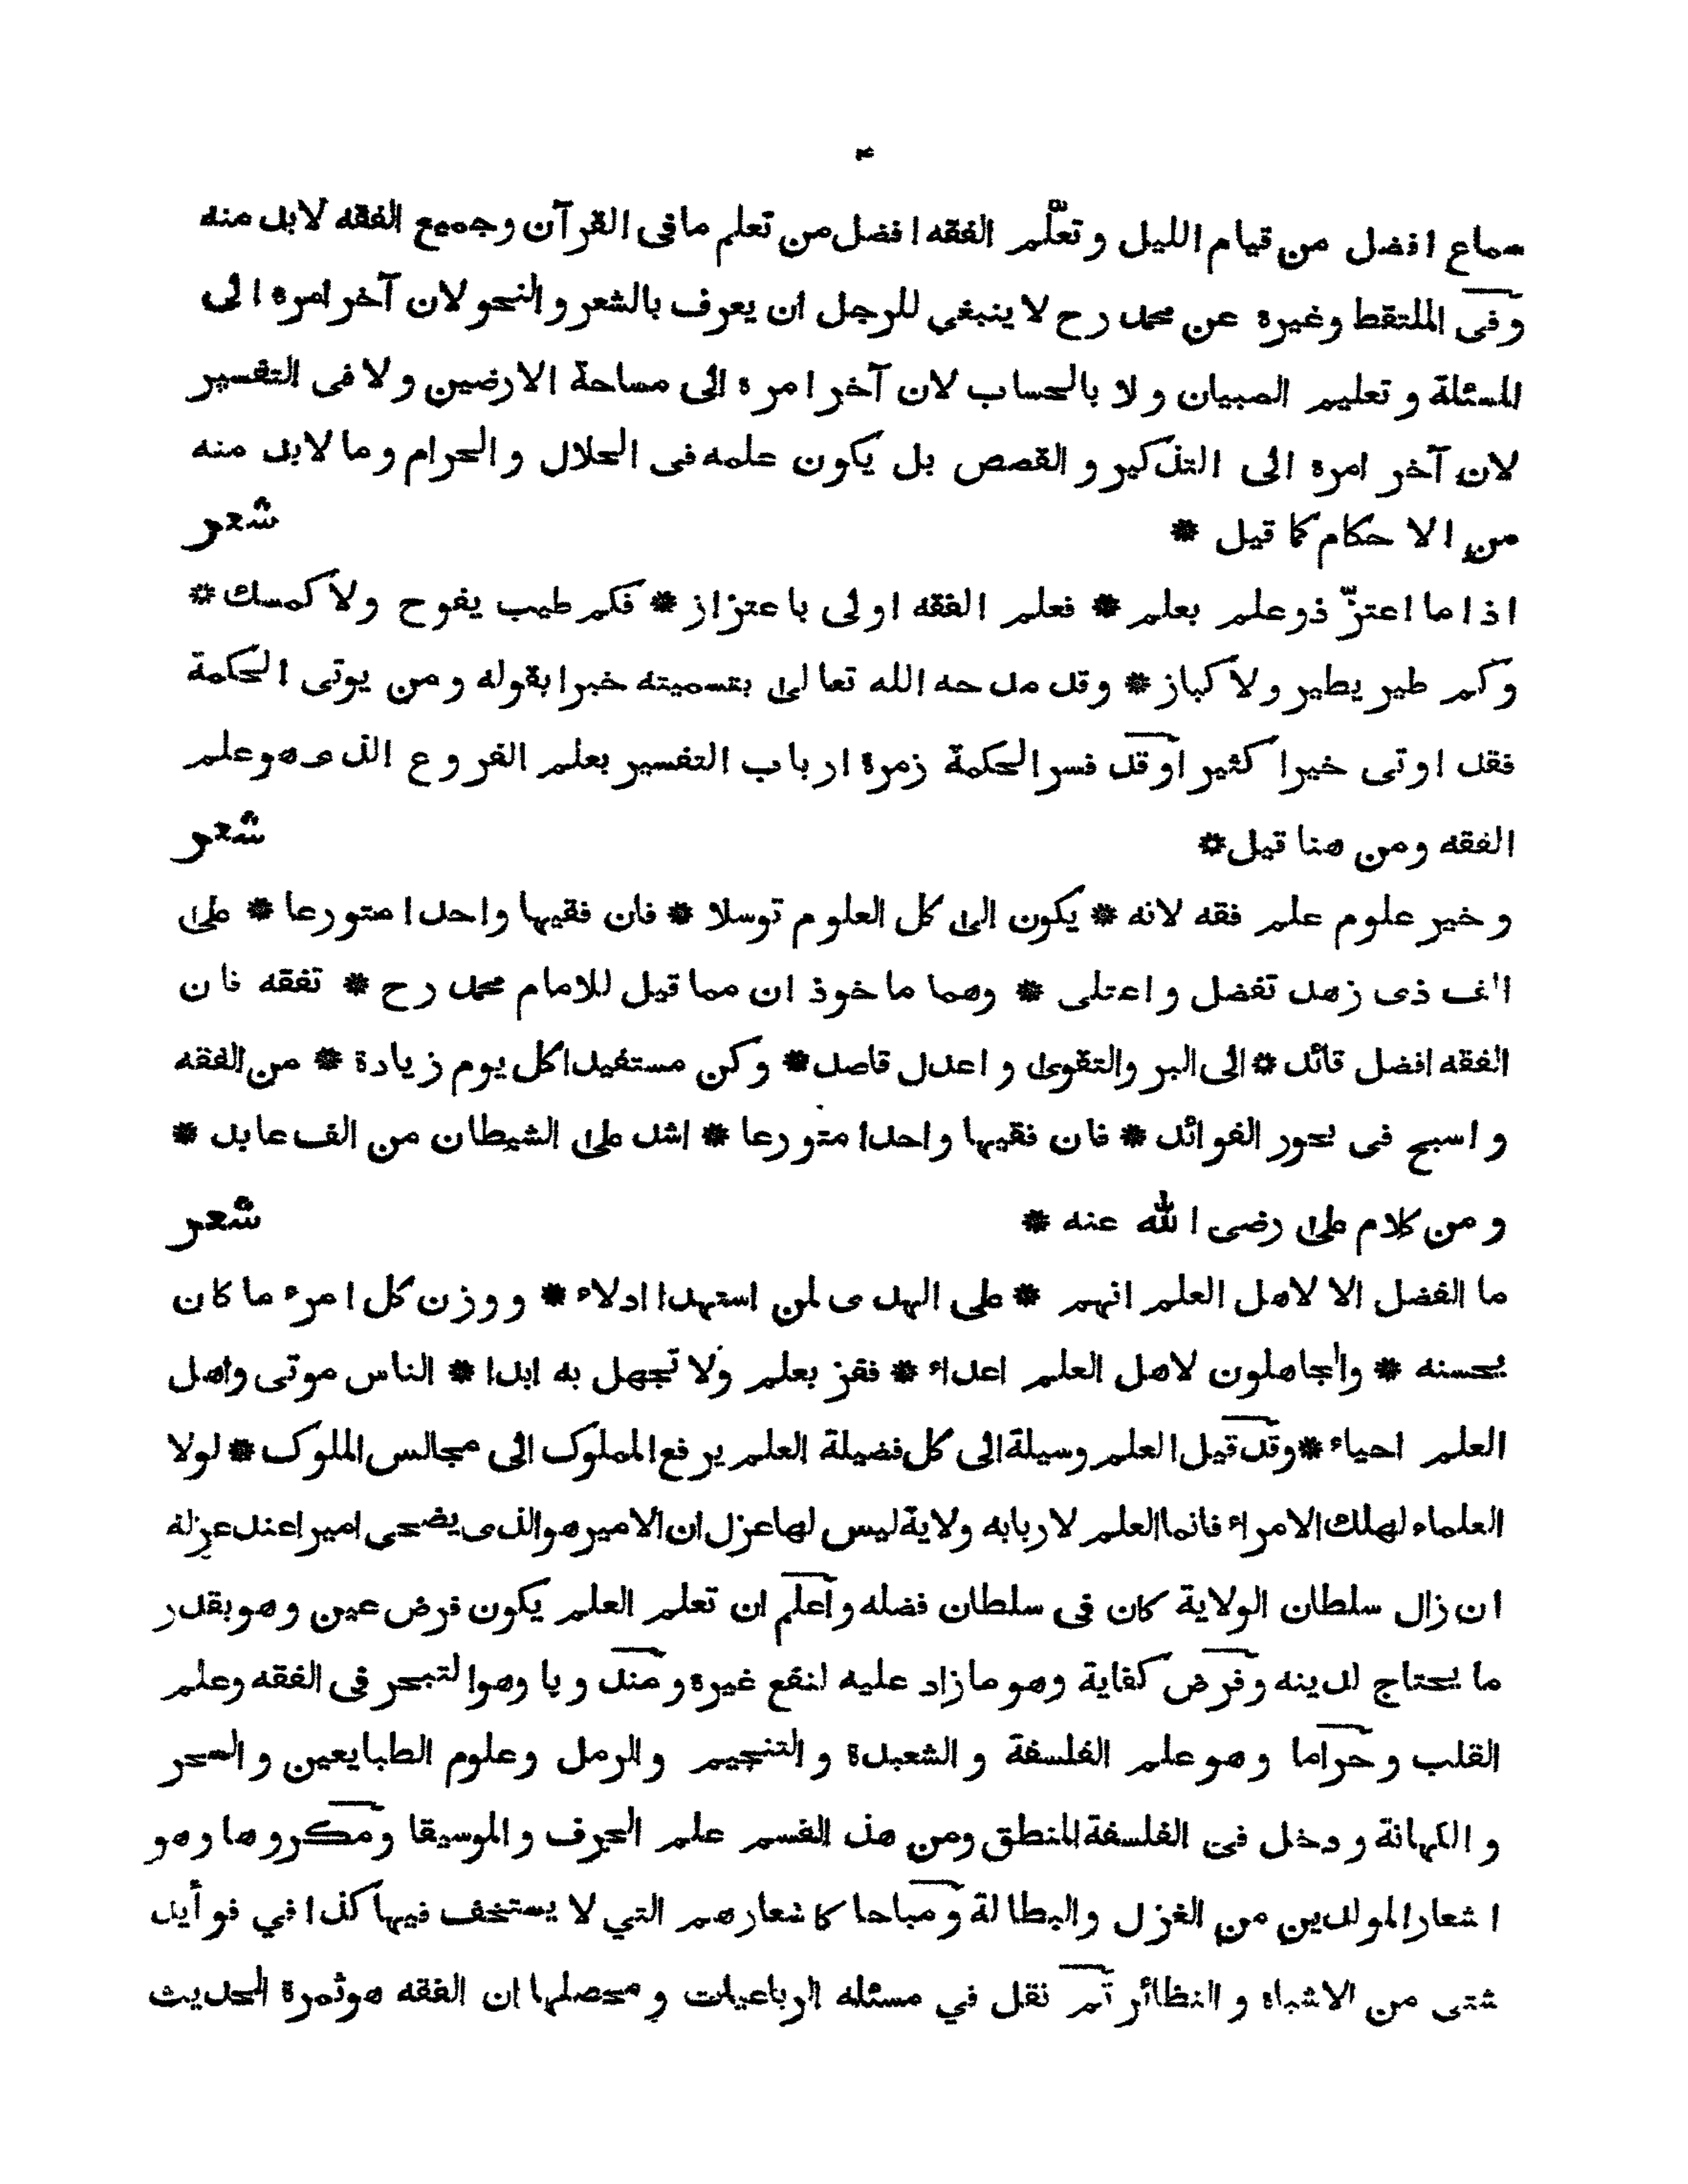 ۴
سماع افضل من قيام الليل و تعلّم الفقه افضل من تعلم مافى القرآن وجميع الفقه لابد منه
وفى الملتقط وغيره عن محمد رح لا ينبغي للرجل ان يعرف بالشعر و النحو لان آخر امره الى
المسئلة و تعليم الصبيان و لا بالحساب لان آخر امره الى مساحة الارضين و لا فى التفسير
لان آخر امره الى التذكير و القصص بل يكون علمه فى الحلال و الحرام و ما لابد منه
من الاحكام كما قيل * شعر
اذا ما اعتزّ ذوعلم بعلم * فعلم الفقه اولى باعتزاز * فكم طيب يفوح ولا كمسك *
وكم طير يطير ولا كباز * وقد مدحه الله تعالى بتسميته خبرا بقوله ومن يوتى الحكمة
فقد اوتى خيرا كثيرا وقد فسر الحكمة زمرة ارباب التفسير بعلم الفروع الذى هو علم
الفقه ومن هنا قيل * شعر
و خير علوم علم فقه لانه * يكون الى كل العلوم توسلا * فان فقيها واحدا متورعا * على
الف ذى زهد تفضل و اعتلى * وهما ماخوذ ان مما قيل للامام محمد رح * تفقه فان
الفقه افضل قائد * الى البر والتقوى و اعدل قاصد * وكن مستفيدا كل يوم زيادة * من الفقه
و اسبح فى بحور الفوائد * فان فقيها واحدا متورعا * اشد على الشيطان من الف عابد *
و من كلام على رضى الله عنه * شعر
ما الفضل الا لاهل العلم انهم * على الهدى لمن استهدا ادلاء * و وزن كل امرء ما كان
يحسنه * والجاهلون لاهل العلم اعداء * ففز بعلم ولا تجهل به ابدا * الناس موتى واهل
العلم احياء * وقد قيل العلم وسيلة الى كل فضيلة العلم يرفع المملوك الى مجالس الملوك * لولا
العلماء لهلك الامراء فانما العلم لاربابه ولاية ليس لها عزل ان الامير هو الذى يضحى اميرا عند عزله
ان زال سلطان الولاية كان فى سلطان فضله واعلم ان تعلم العلم يكون فرض عين وهو بقدر
ما يحتاج لدينه وفرض كفاية وهو ما زاد عليه لنفع غيره ومندوبا وهو التبحر فى الفقه وعلم
القلب وحراما وهو علم الفلسفة و الشعبدة و التنجيم والرمل وعلوم الطبايعين و السحر
و الكهانة و دخل فى الفلسفة المنطق ومن هذ القسم علم الحرف و الموسيقا ومكروها وهو
اشعار المولدين من الغزل والبطالة ومباحا كاشعارهم التي لا يستخف فيها كذا في فوأيد
شتى من الاشباه و النظائر ثم نقل في مسئله الرباعيات و محصلها ان الفقه هو ثمرة الحديث